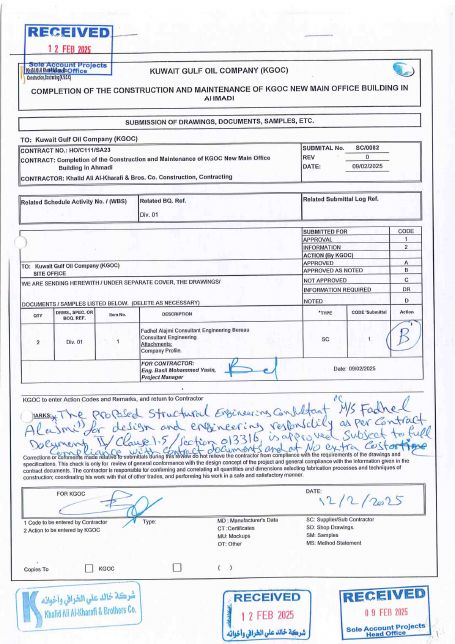 RECEIVED
12 FEB 2025
Sole Account Projects
Head Office
KUWAIT GULF OIL COMPANY (KGOC)
COMPLETION OF THE CONSTRUCTION AND MAINTENANCE OF KGOC NEW MAIN OFFICE BUILDING IN
AHMADI
SUBMISSION OF DRAWINGS, DOCUMENTS, SAMPLES, ETC.
TO: Kuwait Gulf Oil Company (KGOC)
CONTRACT NO.: HO/C111/SA23
CONTRACT: Completion of the Construction and Maintenance of KGOC New Main Office
Building in Ahmadi
CONTRACTOR: Khalid Ali Al-Kharafi & Bros. Co. Construction, Contracting
SUBMITAL No. SC/0082
REV 0
DATE: 09/02/2025
Related Schedule Activity No. / (WBS)
Related BQ. Ref.
Div. 01
Related Submittal Log Ref.
SUBMITTED FOR CODE
APPROVAL 1
INFORMATION 2
ACTION (By KGOC)
APPROVED A
APPROVED AS NOTED B
NOT APPROVED C
INFORMATION REQUIRED DR
NOTED D
TO: Kuwait Gulf Oil Company (KGOC)
SITE OFFICE
WE ARE SENDING HEREWITH / UNDER SEPARATE COVER, THE DRAWINGS/
DOCUMENTS / SAMPLES LISTED BELOW. (DELETE AS NECESSARY)
QTY DRWG, SPEC. OR BOQ. REF. Item No. DESCRIPTION *TYPE CODE Submittal Action
2 Div. 01 1 Fadhel Alajmi Consultant Engineering Bureau SC 1 B
Consultant Engineering
Attachments:
Company Profile
FOR CONTRACTOR:
Eng. Basil Mohammed Yasin,
Project Manager
Date: 09/02/2025
KGOC to enter Action Codes and Remarks, and return to Contractor
The proposed Structural Engineering Consultant "M/S Fadhel
Alajmi" for design and engineering responsibility as per Contract
Document IV/Clause 1.5/Section 013316, is approved Subject to full
Compliance with Contract documents and at No extra Cost or time
Corrections or comments made relative to submittals during this review do not relieve the contractor from compliance with the requirements of the drawings and
specifications. This check is only for review of general conformance with the design concept of the project and general compliance with the information given in the
contract documents. The contractor is responsible for confirming and correlating all quantities and dimensions selecting fabrication processes and techniques of
construction; coordinating his work with that of other trades, and performing his work in a safe and satisfactory manner.
FOR KGOC
DATE:
12/2/2025
1 Code to be entered by Contractor
2 Action to be entered by KGOC
Type:
MD : Manufacturer's Data
CT : Certificates
MU: Mockups
OT: Other
SC: Supplies/Sub Contractor
SD: Shop Drawings
SM: Samples
MS: Method Statement
Copies To KGOC ( )
شركة خالد علي الخرافي وأخوانه
Khalid Ali Al-Kharafi & Brothers Co.
RECEIVED
12 FEB 2025
شركة خالد علي الخرافي وأخوانه
RECEIVED
09 FEB 2025
Sole Account Projects
Head Office